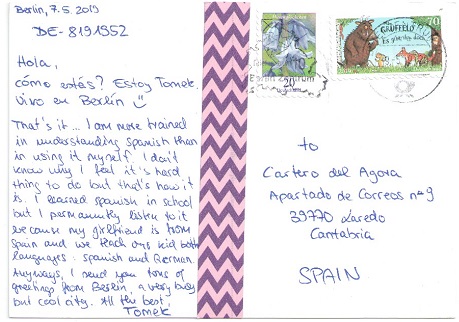 Berlin, 7.5.2019
DE-8191552
Hola,
cómo estás? Estoy Tomek.
Vivo en Berlín
That's it... I am more trained
in understanding spanish than
in using it myself. I don't
know why I feel it's hard
thing to do but that's how it
is. I learned spanish in school
but I permanently listen to it
because my girlfriend is from
Spain and we teach our kid both
languages: spanish and German.
Anyways, I send you tons of
greetings from Berlin, a very busy
but cool city. All the best,
Tomek
GRÜFFELO
70
20
to
Cartero del Agora
Apartado de Correos nº9
39770 Laredo
Cantabria
SPAIN